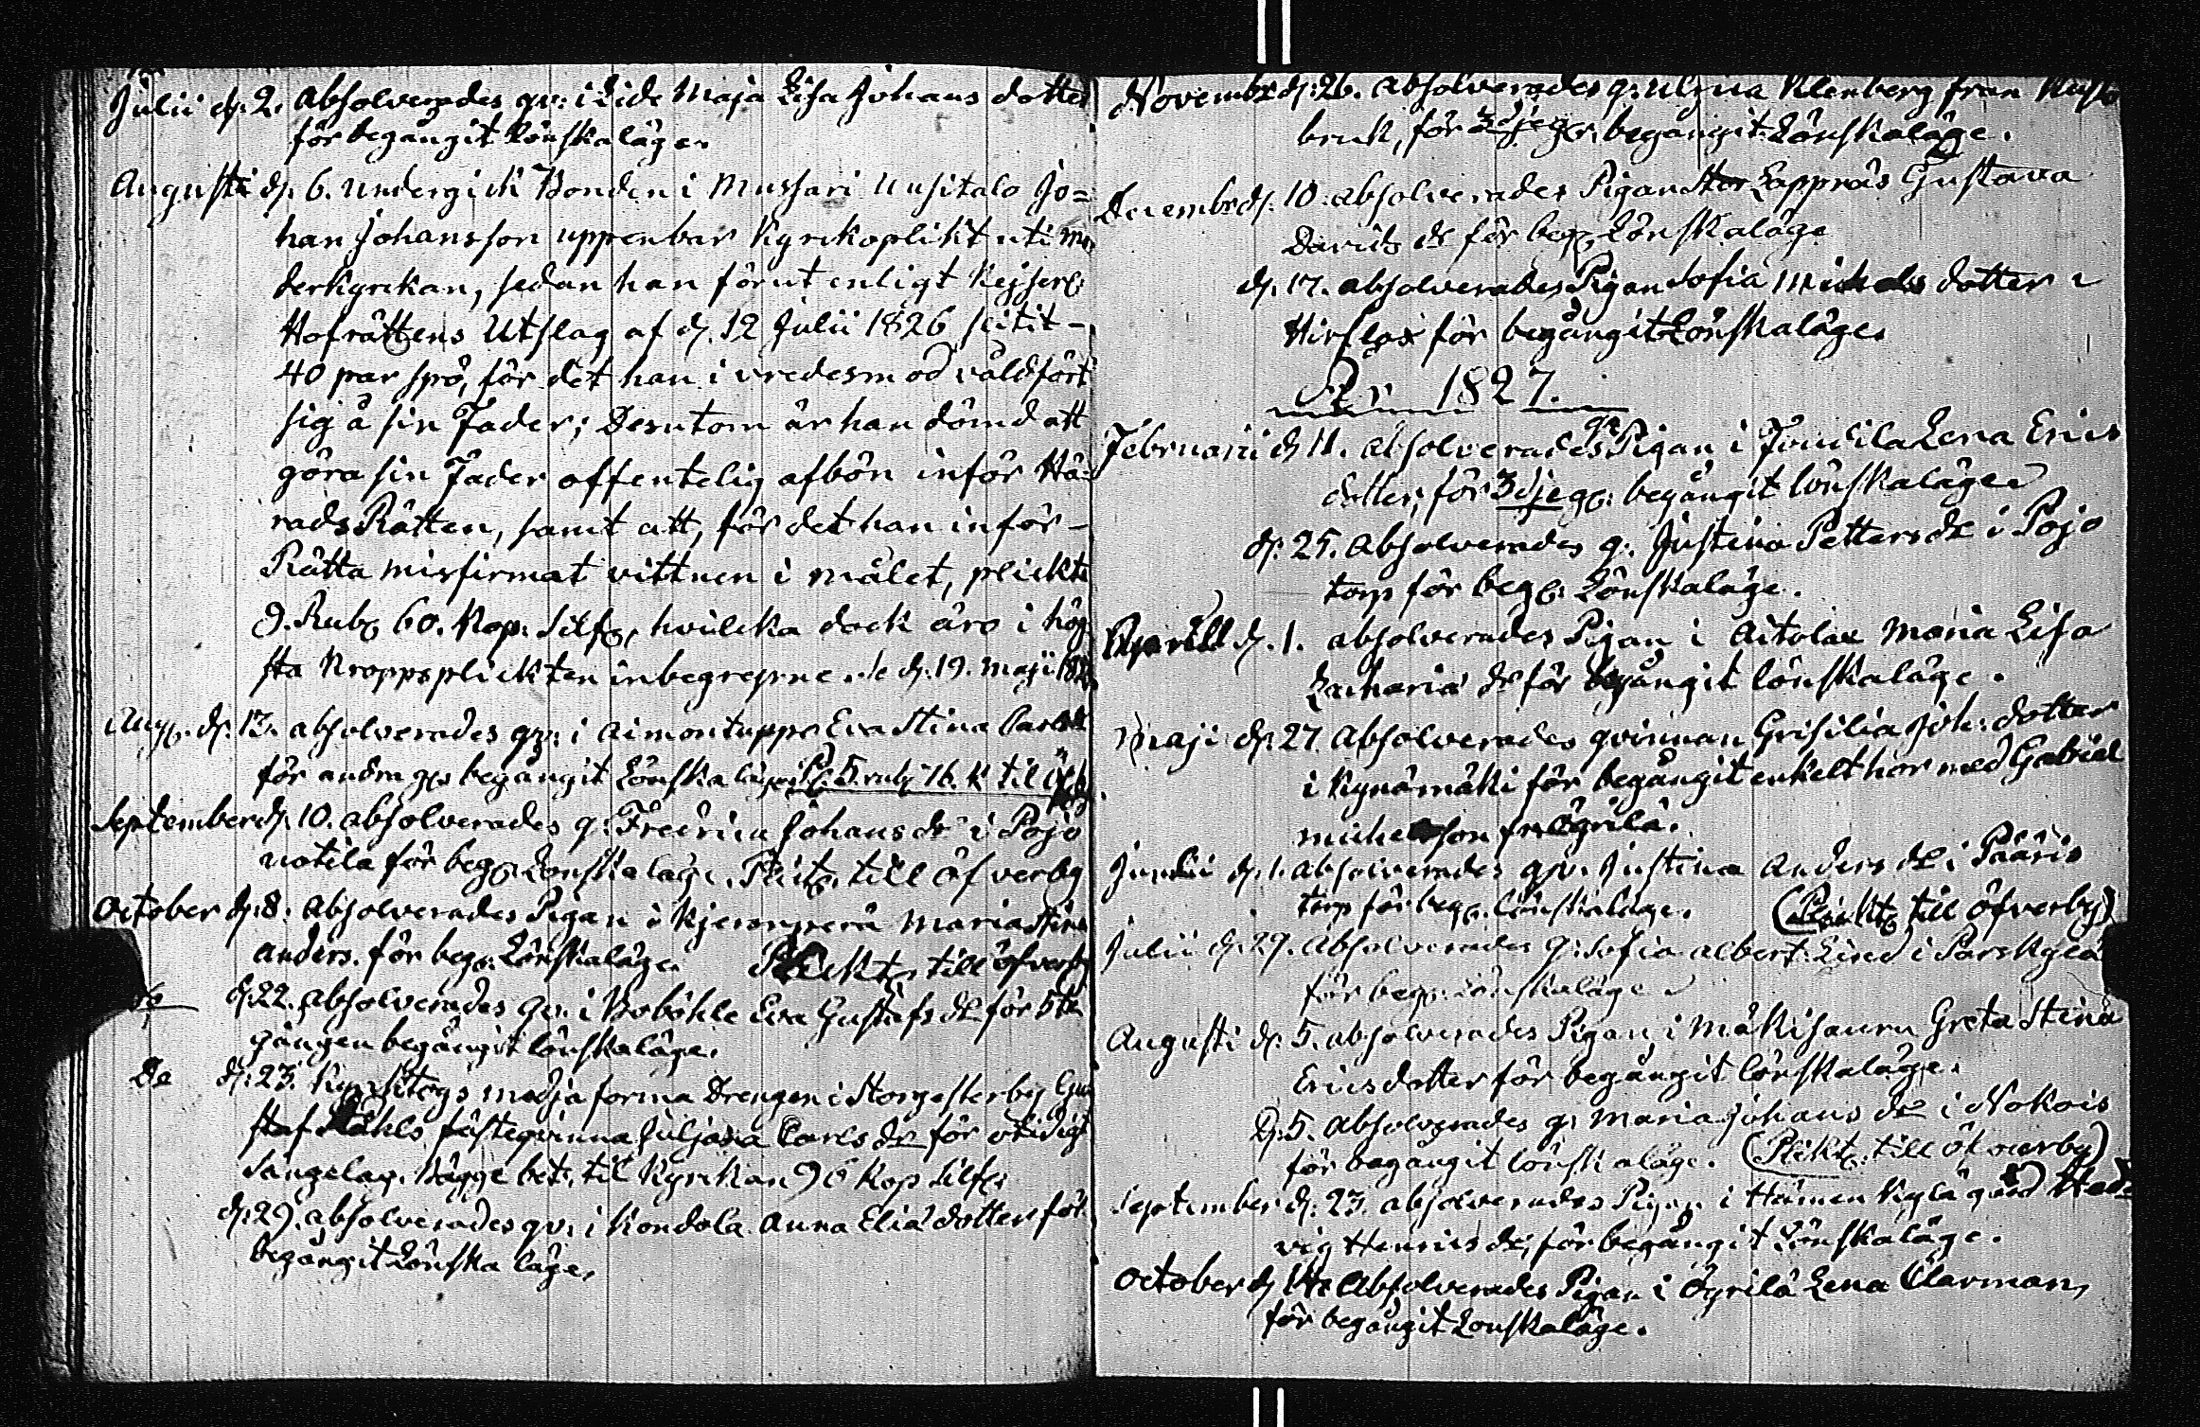 Julii d. 2. absolverades qv: i Dide Maja Lisa Johans dotter
för begångit Lönskaläge.
Augusti d. 6. undergick Bonden i Mussari Uusitalo Jo=
han Johansson uppenbar Kyrckoplikt uti Mo
derkyrckan, sedan han förut enligt Kejserl:
Hofrättens Utslag af d. 12 Julii 1826 slitit -
40 par spö, för det han i vredesmod våldfört
sig å sin Fader; Desutom är han dömd att
göra sin Fader offentelig afbön inför Hä-
rads Rätten, samt att, för det han inför -
Rätta misfirmat vittnen i målet, plickta
9. Rub. 60. Kop: Silf., hvilcka dock äro i hög
sta Kroppsplickten inbegrepne. de d. 19. Maji
Aug. d. 13. absolverades qv: i Aimontuppa Eva Stina
för andra g. begångit Lönskaläge. 5. rub. 16. K til
September d. 10. absolverades q: Fredrica Johans dr i Pojo
uotila för beg. Lönskaläge. Plickt. till öfverby
October d. 8: absolverades Pigan i Kjeronperä Maria Stina
Anders. för beg. Lönskaläge. Plickt. till öfverby
d. 22. absolverades qv. i Boböhle Eva Gustafs dr för 5te
gången begångit lönskaläge.
De d. 23. medja forma Drengen i Storgesterby Gu
staf Ståhls fästeqvinna Juljana Carls dr för otidigt
Sängelag. Bägge bet. til Kyrckan 96 Kop Silf.
d. 29. absolverades qv. i Kondola Anna Elia dotter för
begångit Lönska läge.
Novembr d. 26. absolverades q: Ulrica Klenberg från
bruk, för 3dje g. begångit Lönskaläge.
Decembr d. 10. absolverades Pigan Stor Lappnäs Gustava
Davids dr för beg. Lönskaläge
d. 17. absolverades Pigan Sofia Michels dotter i
Hirslax för begångit Lönskaläge.
År 1827.
Februarii d. 11. absolverades Pigan i Tondila Lena Erics
dotter, för 3dje g: begångit lönskaläge.
d. 25. absolverades q. Justina Petters dr i Pojo
torp för beg: Lönskaläge.
Aprill d. 1. absolverades Pigan i Aitolax Maria Lisa
Zacharia dr för begångit lönskaläge.
Maji d. 27. absolverades qvinnan Grisilia Joh: dotter
i Kynämäki för begångit enkelt hor med Gabriel
Michelsson fr. Ögrilä.
d. 1. absolverades qv. Justina Anders dr i Pääris
torp för beg. lönskaläge. (Plickt. till öfverby)
Julii d. 29. absolverades q: Sofia Albert: Lind i Parskylä
för beg. lönskaläge
Augusti d. 5. absolverades Pigan i Mäkisauru Greta Stina
Erics dotter för begångit lönskaläge.
d. 5. absolverades q: Maria Johans dr i Nokois
för begångit lönskaläge. (Plikt: till öfverby)
September d. 23. absolverades Pigan i Hämen Kylä gård Hed=
vig Henrics dr, för begångit Lönskaläge.
October d. 14. absolverades Pigan i Ögrilä Lena Clarman,
för begångit Lönskaläge.